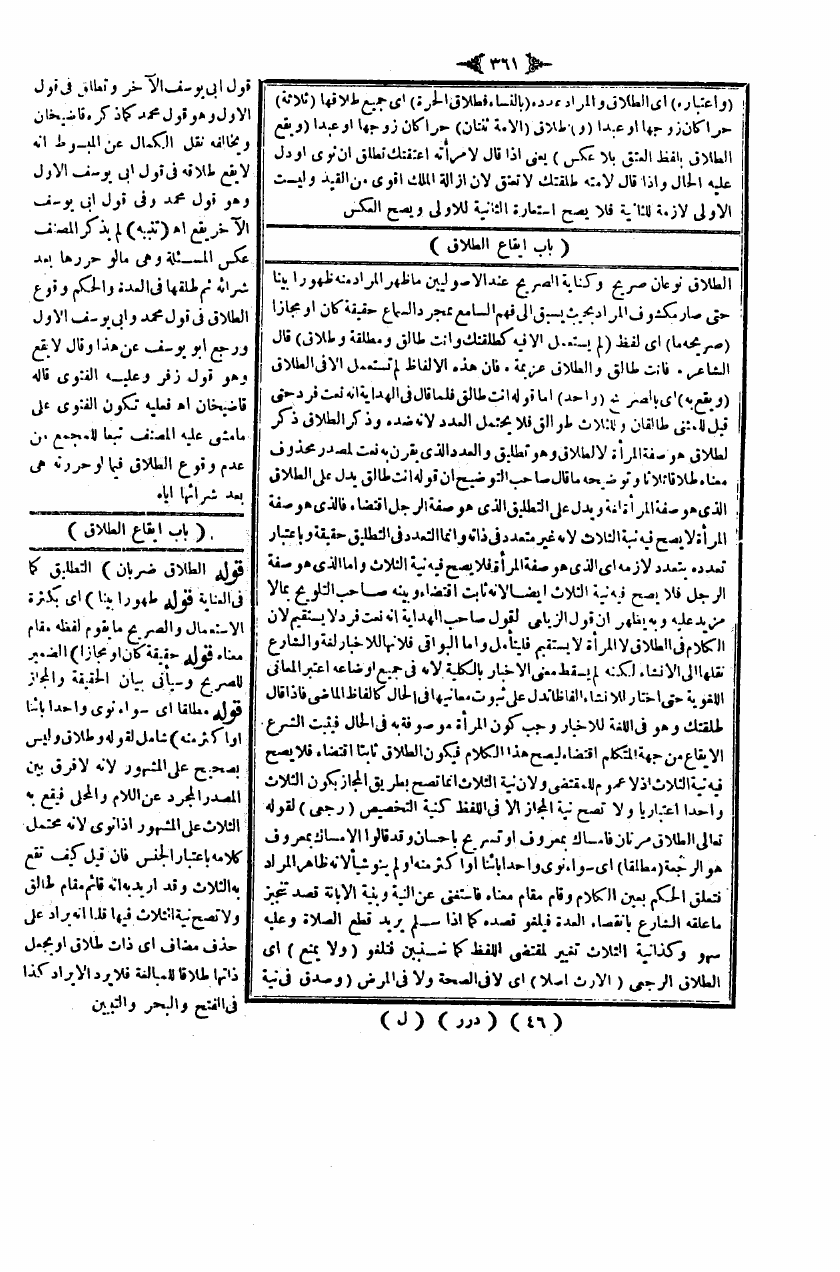 ٣٦١
(واعتباره) اى الطلاق والمراد عدده (بالنساء فطلاق الحرة) اى جميع طلاقها (ثلاثة)
حرا كان زوجها او عبدا (و) طلاق (الامة ثنتان) حرا كان زوجها او عبدا (ويقع
الطلاق بلفظ العتق بلا عكس) يعنى اذا قال لامرأته اعتقتك تطلق ان نوى او دل
عليه الحال واذا قال لامته طلقتك لا تعتق لان ازالة الملك اقوى من القيد وليست
الاولى لازمة للثانية فلا يصح استعارة الثانية للاولى ويصح العكس
( باب ايقاع الطلاق )
الطلاق نوعان صريح وكناية الصريح عند الاصوليين ما ظهر المراد منه ظهورا بينا
حتى صار مكشوف المراد بحيث يسبق الى فهم السامع بمجرد السماع حقيقة كان او مجازا
(صريحه ما) اى لفظ (لم يستعمل الا فيه كطلقتك وانت طالق ومطلقة وطلاق) قال
الشاعر ٠ فانت طالق والطلاق عزيمة ٠ فان هذه الالفاظ لم تستعمل الا فى الطلاق
(ويقع به) اى بالصريح (واحد) اما قوله انت طالق فلما قال فى الهداية انه نعت فرد حتى
قيل للمثنى طالقان وللثلاث طوالق فلا يحتمل العدد لانه ضده وذكر الطلاق ذكر
لطلاق هو صفة المرأة لا لطلاق وهو تطليق والعدد الذى يقرن به نعت لمصدر محذوف
معناه طلاقا ثلاثا وتوضيحه ما قال صاحب التوضيح ان قوله انت طالق يدل على الطلاق
الذى هو صفة المرأة لغة ويدل على التطليق الذى هو صفة الرجل اقتضاء فالذى هو صفة
المرأة لا يصح فيه نية الثلاث لانه غير متعدد فى ذاته وانما التعدد فى التطليق حقيقة وباعتبار
تعدده يتعدد لازمه اى الذى هو صفة المرأة فلا يصح فيه نية الثلاث واما الذى هو صفة
الرجل فلا يصح فيه نية الثلاث ايضا لانه ثابت اقتضاء وبينه صاحب التلويح بما لا
مزيد عليه وبه يظهر ان قول الزيلعى لقول صاحب الهداية انه نعت فرد لا يستقيم لان
الكلام فى الطلاق لا المرأة لا يستقيم فليتأمل واما البواقى فلانها للاخبار لغة والشارع
نقلها الى الانشاء لكنه لم يسقط معنى الاخبار بالكلية لانه فى جميع اوضاعه اعتبر المعانى
اللغوية حتى اختار للانشاء الفاظا تدل على ثبوت معانيها فى الحال كالفاظ الماضى فاذا قال
طلقتك وهو فى اللغة للاخبار وجب كون المرأة موصوفة به فى الحال فيثبت الشرع
الايقاع من جهة المتكلم اقتضاء ليصح هذا الكلام فيكون الطلاق ثابتا اقتضاء فلا يصح
فيه نية الثلاث اذ لا عموم للمقتضى ولان نية الثلاث انما تصح بطريق المجاز بكون الثلاث
واحدا اعتباريا ولا تصح نية المجاز الا فى اللفظ كنية التخصيص (رجعى) لقوله
تعالى الطلاق مرتان فامساك بمعروف او تسريح باحسان وقد قالوا الامساك بمعروف
هو الرجعة (مطلقا) اى سواء نوى واحدا بائنا او اكثر منه او لم ينو شيأ لانه ظاهر المراد
فتعلق الحكم بعين الكلام وقام مقام معناه فاستغنى عن النية وبنية الابانة قصد تنجيز
ما علقه الشارع بانقضاء العدة فيلغو قصده كما اذا سلم يريد قطع الصلاة وعليه
سهو وكذا نية الثلاث تغيير لمقتضى اللفظ كما سنبين فتلغو (ولا يمنع) اى
الطلاق الرجعى (الارث اصلا) اى لا فى الصحة ولا فى المرض (وصدق فى نية
(٤٦) (درر) (ل)
قول ابى يوسف الآخر وتطلق فى قول
الاول وهو قول محمد كما ذكره قاضيخان
ويخالفه نقل الكمال عن المبسوط انه
لا يقع طلاقه فى قول ابى يوسف الاول
وهو قول محمد وفى قول ابى يوسف
الآخر يقع اه (تنبيه) لم يذكر المصنف
عكس المسئلة وهى مالو حررها بعد
شرائه ثم طلقها فى العدة والحكم وقوع
الطلاق فى قول محمد وابى يوسف الاول
ورجع ابو يوسف عن هذا وقال لا يقع
وهو قول زفر وعليه الفتوى قاله
قاضيخان اه فعليه تكون الفتوى على
ما مشى عليه المصنف تبعا للمجمع من
عدم وقوع الطلاق فيما لو حررته هى
بعد شرائها اياه
( باب ايقاع الطلاق )
قوله الطلاق ضربان) التطليق كما
فى العناية قوله ظهورا بينا) اى بكثرة
الاستعمال والصريح ما يقوم لفظه مقام
معناه قوله حقيقة كان او مجازا) الضمير
للصريح وسيأتى بيان الحقيقة والمجاز
قوله مطلقا اى سواء نوى واحدا بائنا
او اكثر منه) شامل لقوله وطلاق وليس
بصحيح على المشهور لانه لا فرق بين
المصدر المجرد عن اللام والمحلى فيقع به
الثلاث على المشهور اذا نوى لانه محتمل
كلامه باعتبار الجنس فان قيل كيف تقع
به الثلاث وقد اريد به انه قائم مقام طالق
ولا تصح نية الثلاث فيها قلنا انه يراد على
حذف مضاف اى ذات طلاق او يجعل
ذاتها طلاقا للمبالغة فلا يرد الايراد كذا
فى الفتح والبحر والتبيين